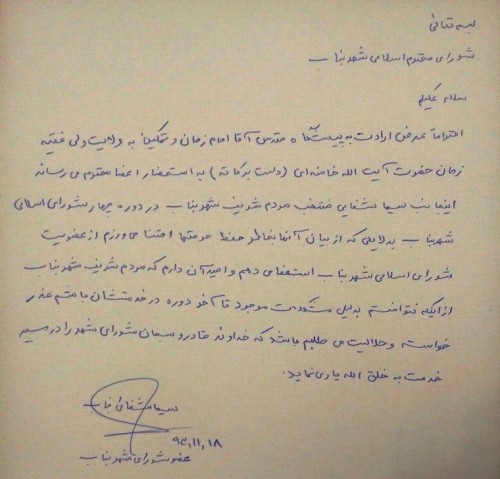 بسمه تعالی
شورای محترم اسلامی شهر بناب
سلام علیکم
احتراماً عرض ارادت به پیشگاه مقدس آقا امام زمان و تمکین به ولایت ولی فقیه
زمان حضرت آیت الله خامنه‌ای (دامت برکاته) به استحضار اعضا محترم می رساند
اینجانب سیما شفایی منتخب مردم شریف شهر بناب در دوره چهارم شورای اسلامی
شهر بناب بدلایلی که از بیان آنها بخاطر حفظ حرمتها امتناع می ورزم از عضویت
شورای اسلامی شهر بناب استعفا می دهم و امید آن دارم که مردم شریف شهر بناب
از اینکه نتوانستم بدلیل مشکلات موجود تا آخر دوره در خدمتشان باشم عذر
خواسته و حلالیت می طلبم باشد که خداوند قادر و سبحان شورای شهر را در مسیر
خدمت به خلق الله یاری نماید.
سیما شفائی
۹۴,۱۱,۱۸
عضو شورای شهر بناب